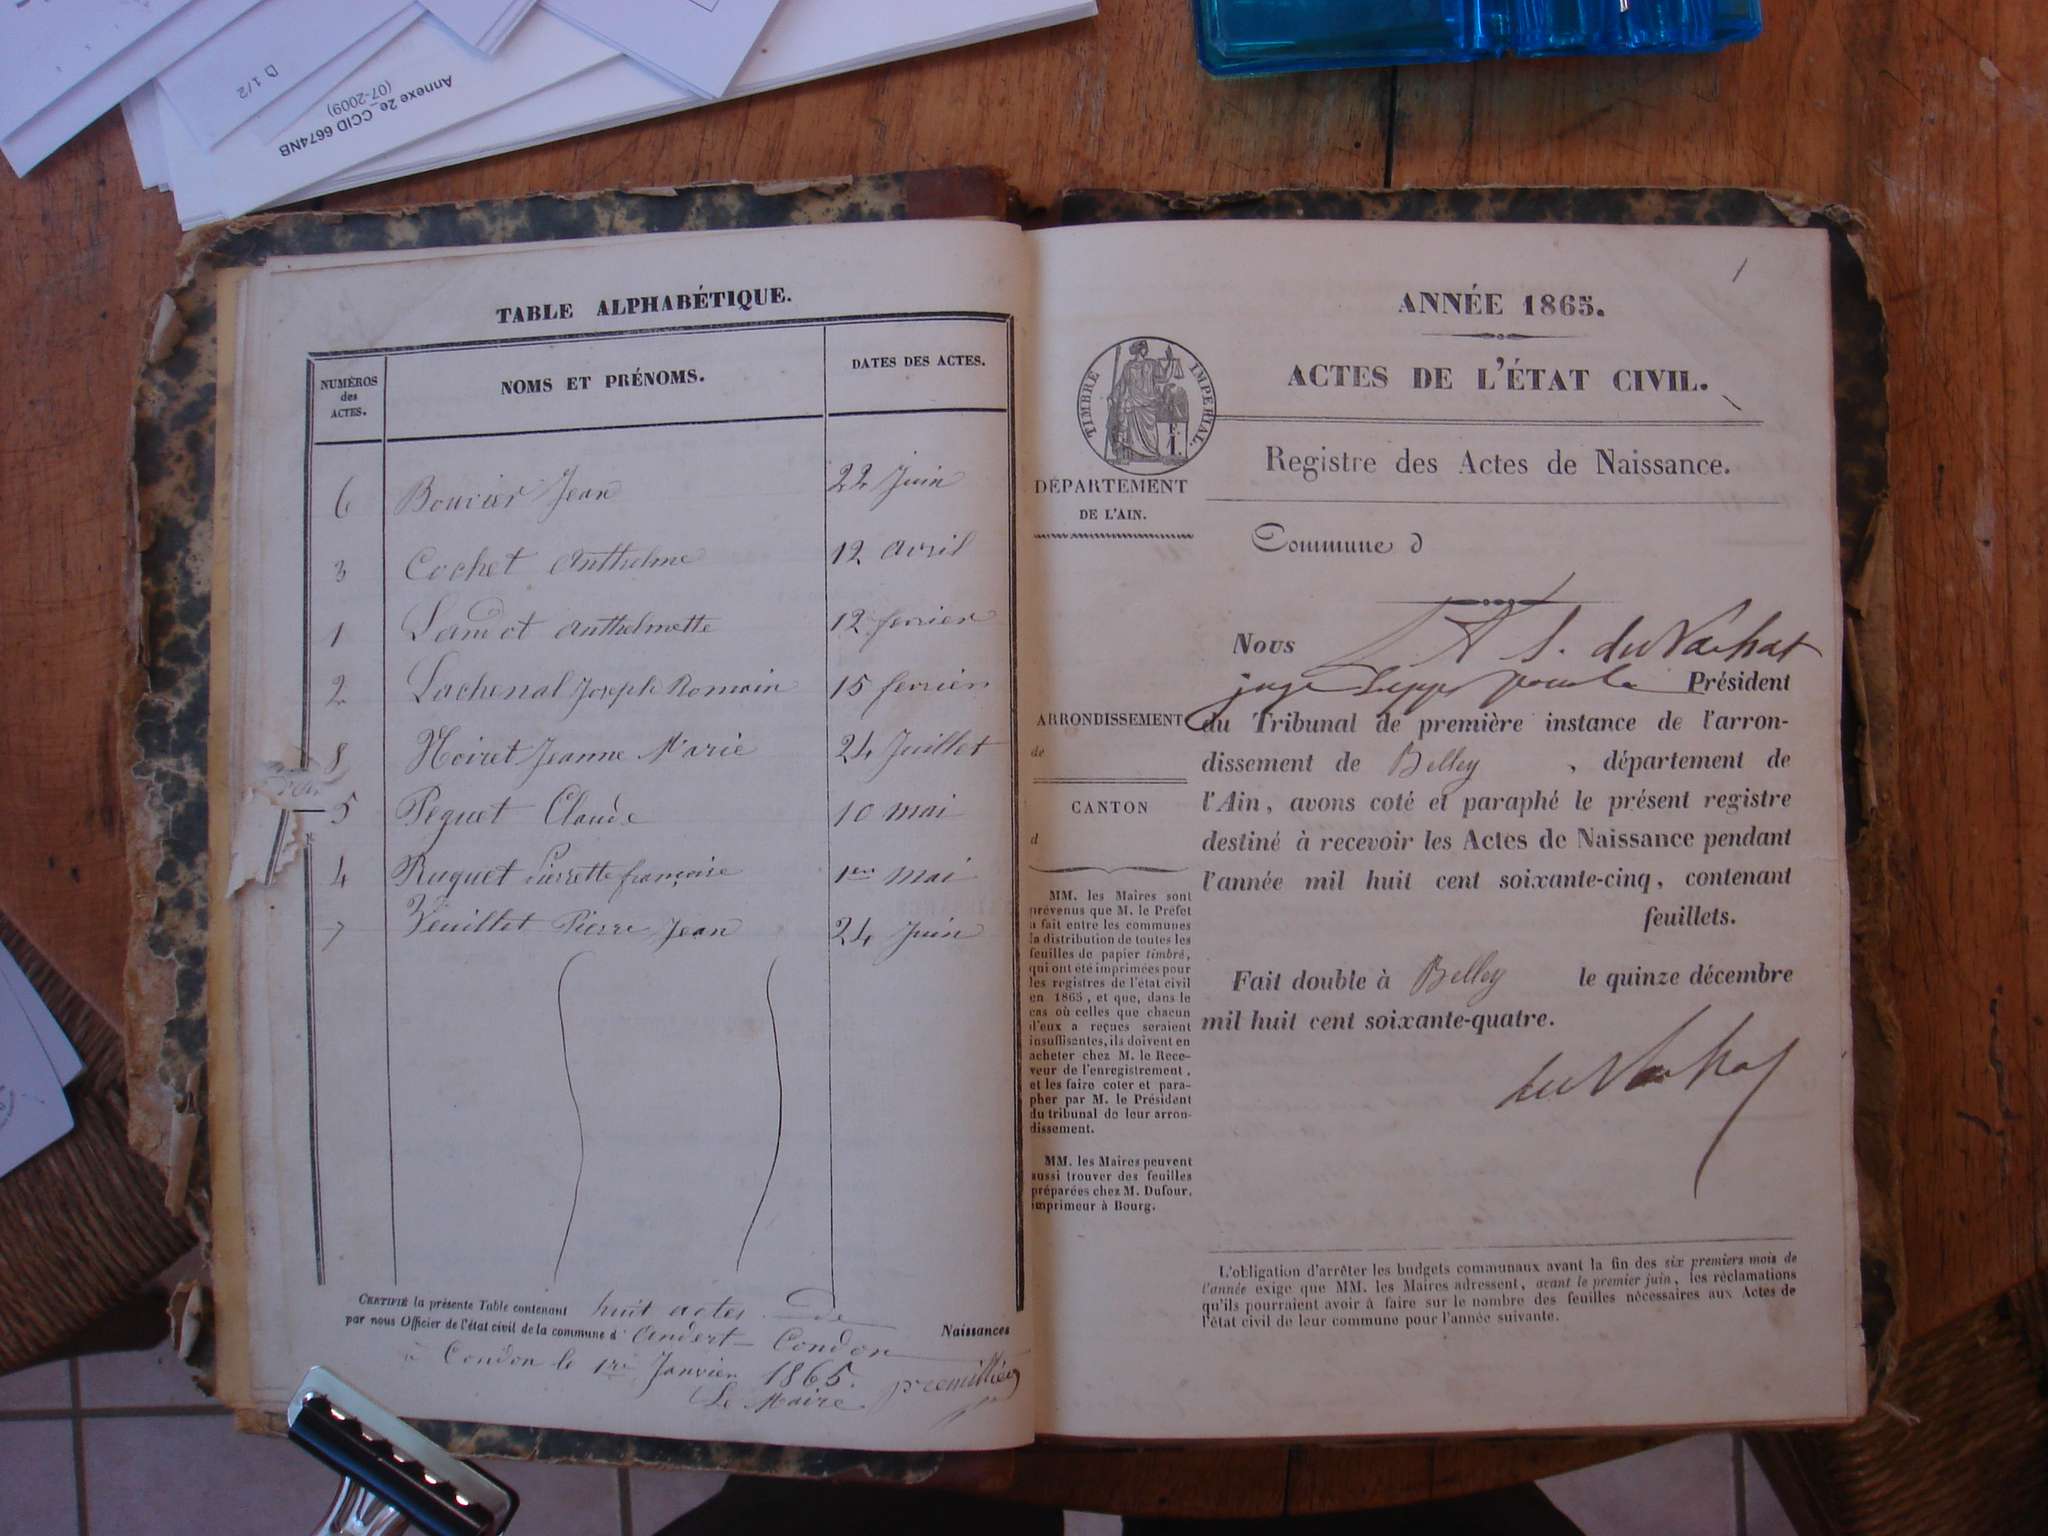 D 1/2
Annexe 2e_CCID 6674NB
(07-2009)
TABLE ALPHABÉTIQUE.
NUMÉROS des ACTES. NOMS ET PRÉNOMS. DATES DES ACTES.
6 Bouvier Jean 22 Juin
3 Cochet Anthelme 12 avril
1 anthelmette 12 fevrier
2 Lachenal Joseph Romain 15 fevrier
8 Noiret Jeanne Marie 24 Juillet
5 Peguet Claude 10 mai
4 Ruguet Pierrette françoise 1er mai
7 Veuillet Pierre Jean 24 Juin
CERTIFIÉ la présente Table contenant huit actes de Naissances
par nous Officier de l'état civil de la commune d' Andert-Condon
à Condon le 1er Janvier 1865.
Le Maire
1
ANNÉE 1865.
ACTES DE L'ÉTAT CIVIL.
TIMBRE IMPÉRIAL.
Registre des Actes de Naissance.
DÉPARTEMENT
DE L'AIN.
Commune d
Nous du Vachat
juge Président
ARRONDISSEMENT
de
CANTON
d
du Tribunal de première instance de l'arron-
dissement de Belley , département de
l'Ain, avons coté et paraphé le présent registre
destiné à recevoir les Actes de Naissance pendant
l'année mil huit cent soixante-cinq, contenant
feuillets.
Fait double à Belley le quinze décembre
mil huit cent soixante-quatre.
du Vachat
MM. les Maires sont
prévenus que M. le Préfet
a fait entre les communes
la distribution de toutes les
feuilles de papier timbré,
qui ont été imprimées pour
les registres de l'état civil
en 1865, et que, dans le
cas où celles que chacun
d'eux a reçues seraient
insuffisantes, ils doivent en
acheter chez M. le Rece-
veur de l'enregistrement,
et les faire coter et para-
pher par M. le Président
du tribunal de leur arron-
dissement.
MM. les Maires peuvent
aussi trouver des feuilles
préparées chez M. Dufour,
imprimeur à Bourg.
L'obligation d'arrêter les budgets communaux avant la fin des six premiers mois de
l'année exige que MM. les Maires adressent, avant le premier juin, les réclamations
qu'ils pourraient avoir à faire sur le nombre des feuilles nécessaires aux Actes de
l'état civil de leur commune pour l'année suivante.